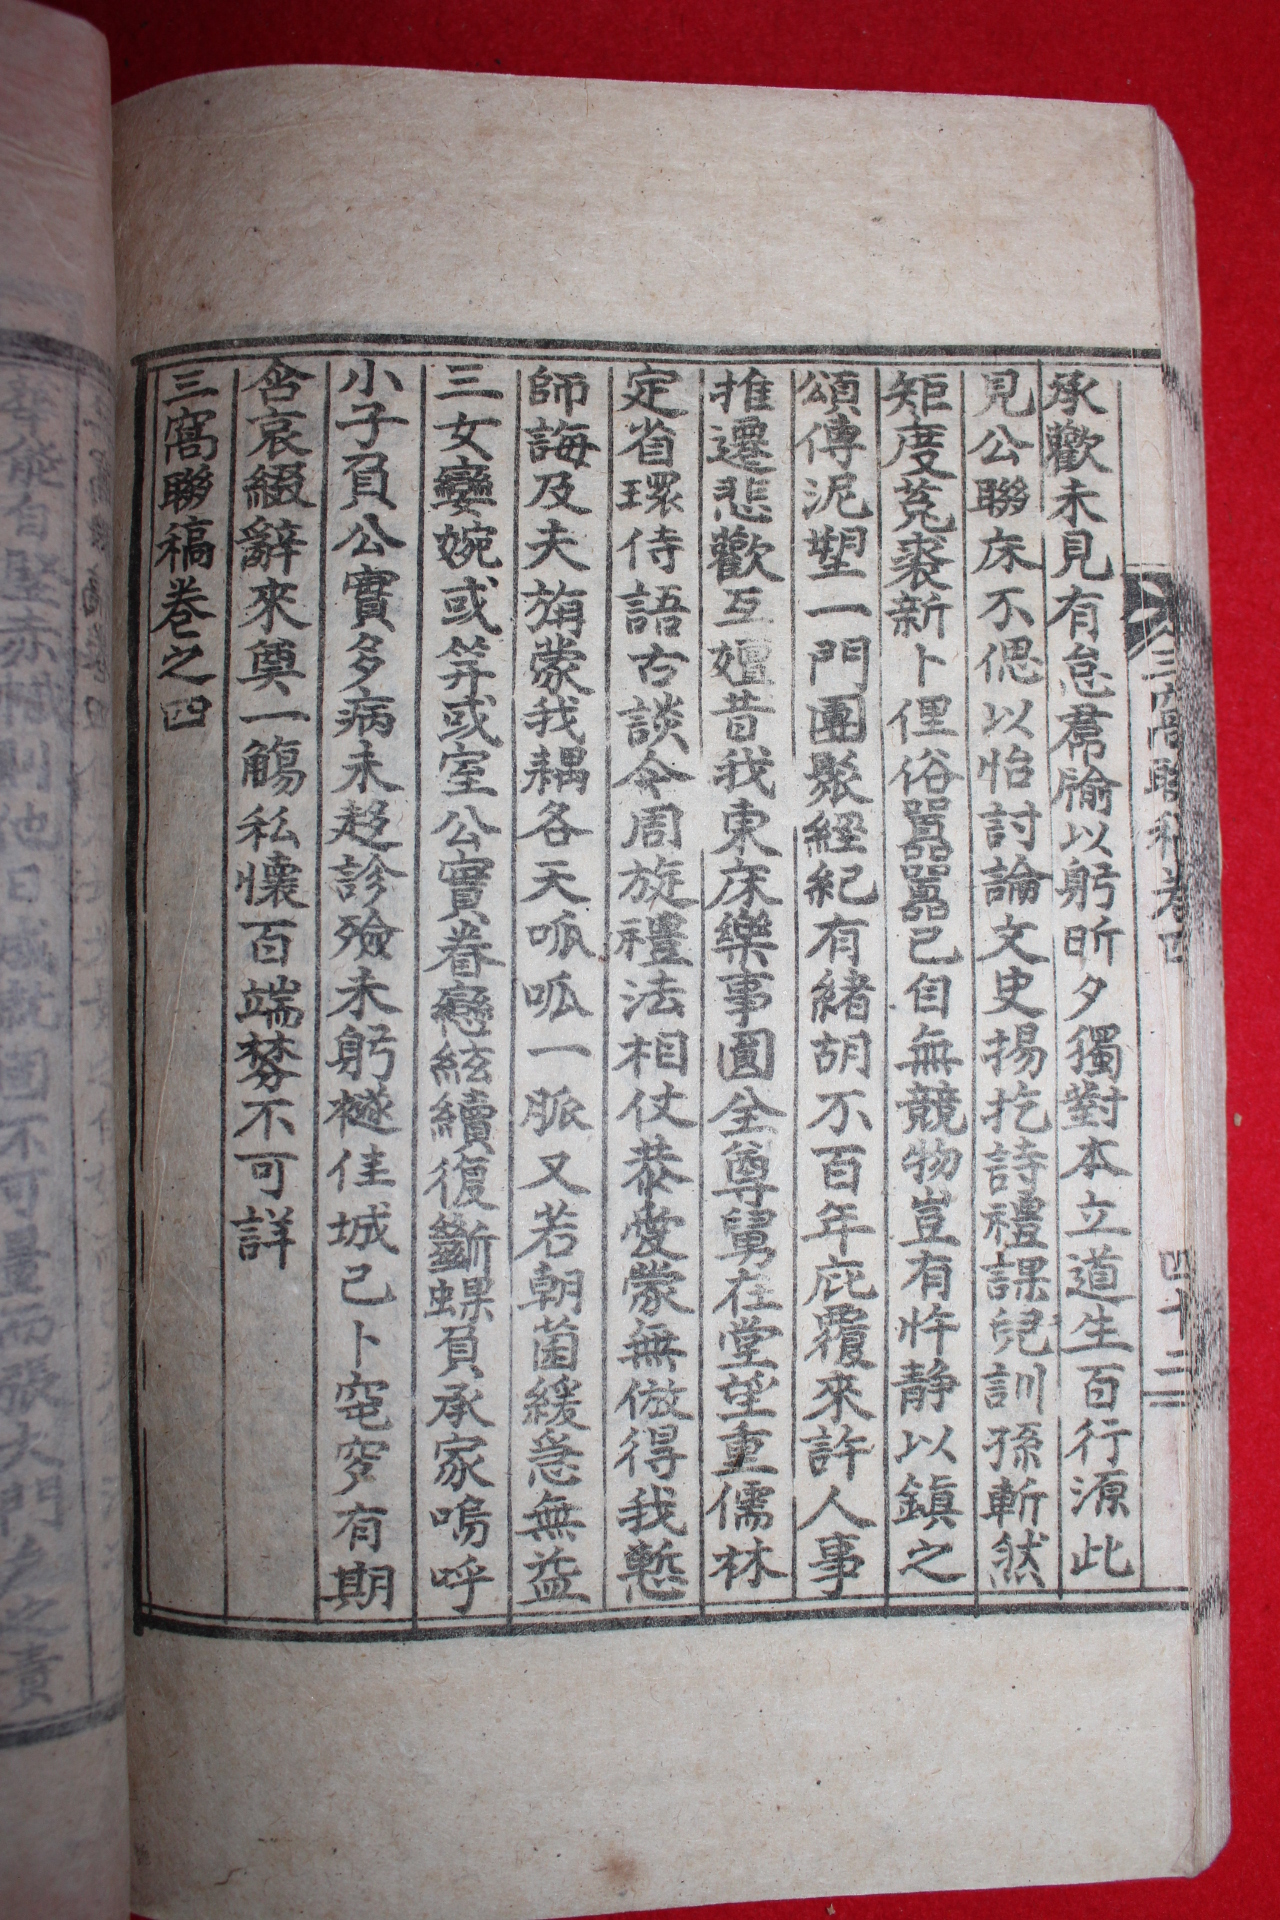 承歡未見有怠群喻以躬昕夕獨對本立道生百行源此
見公聯床不偲以怡討論文史揚扢詩禮課兒訓孫斬然
矩度菟裘新卜俚俗囂囂已自無競物豈有忤靜以鎮之
頌傳泥塑一門團聚經紀有緒胡不百年庇覆來許人事
推遷悲歡互嬗昔我東床樂事圓全尊舅在堂望重儒林
定省環侍語古談今周旋禮法相仗恭愛蒙無倣得我慙
師誨及夫旃蒙我耦各天呱呱一脈又若朝菌緩急無益
三女孌婉或筓或室公實眷戀絃續復斷螟負承家嗚呼
小子負公實多病未趍診殮未躬襚佳城已卜窀穸有期
含哀綴辭來奠一觴私懷百端棼不可詳
三窩聯稿卷之四
三窩聯稿卷四
四十二